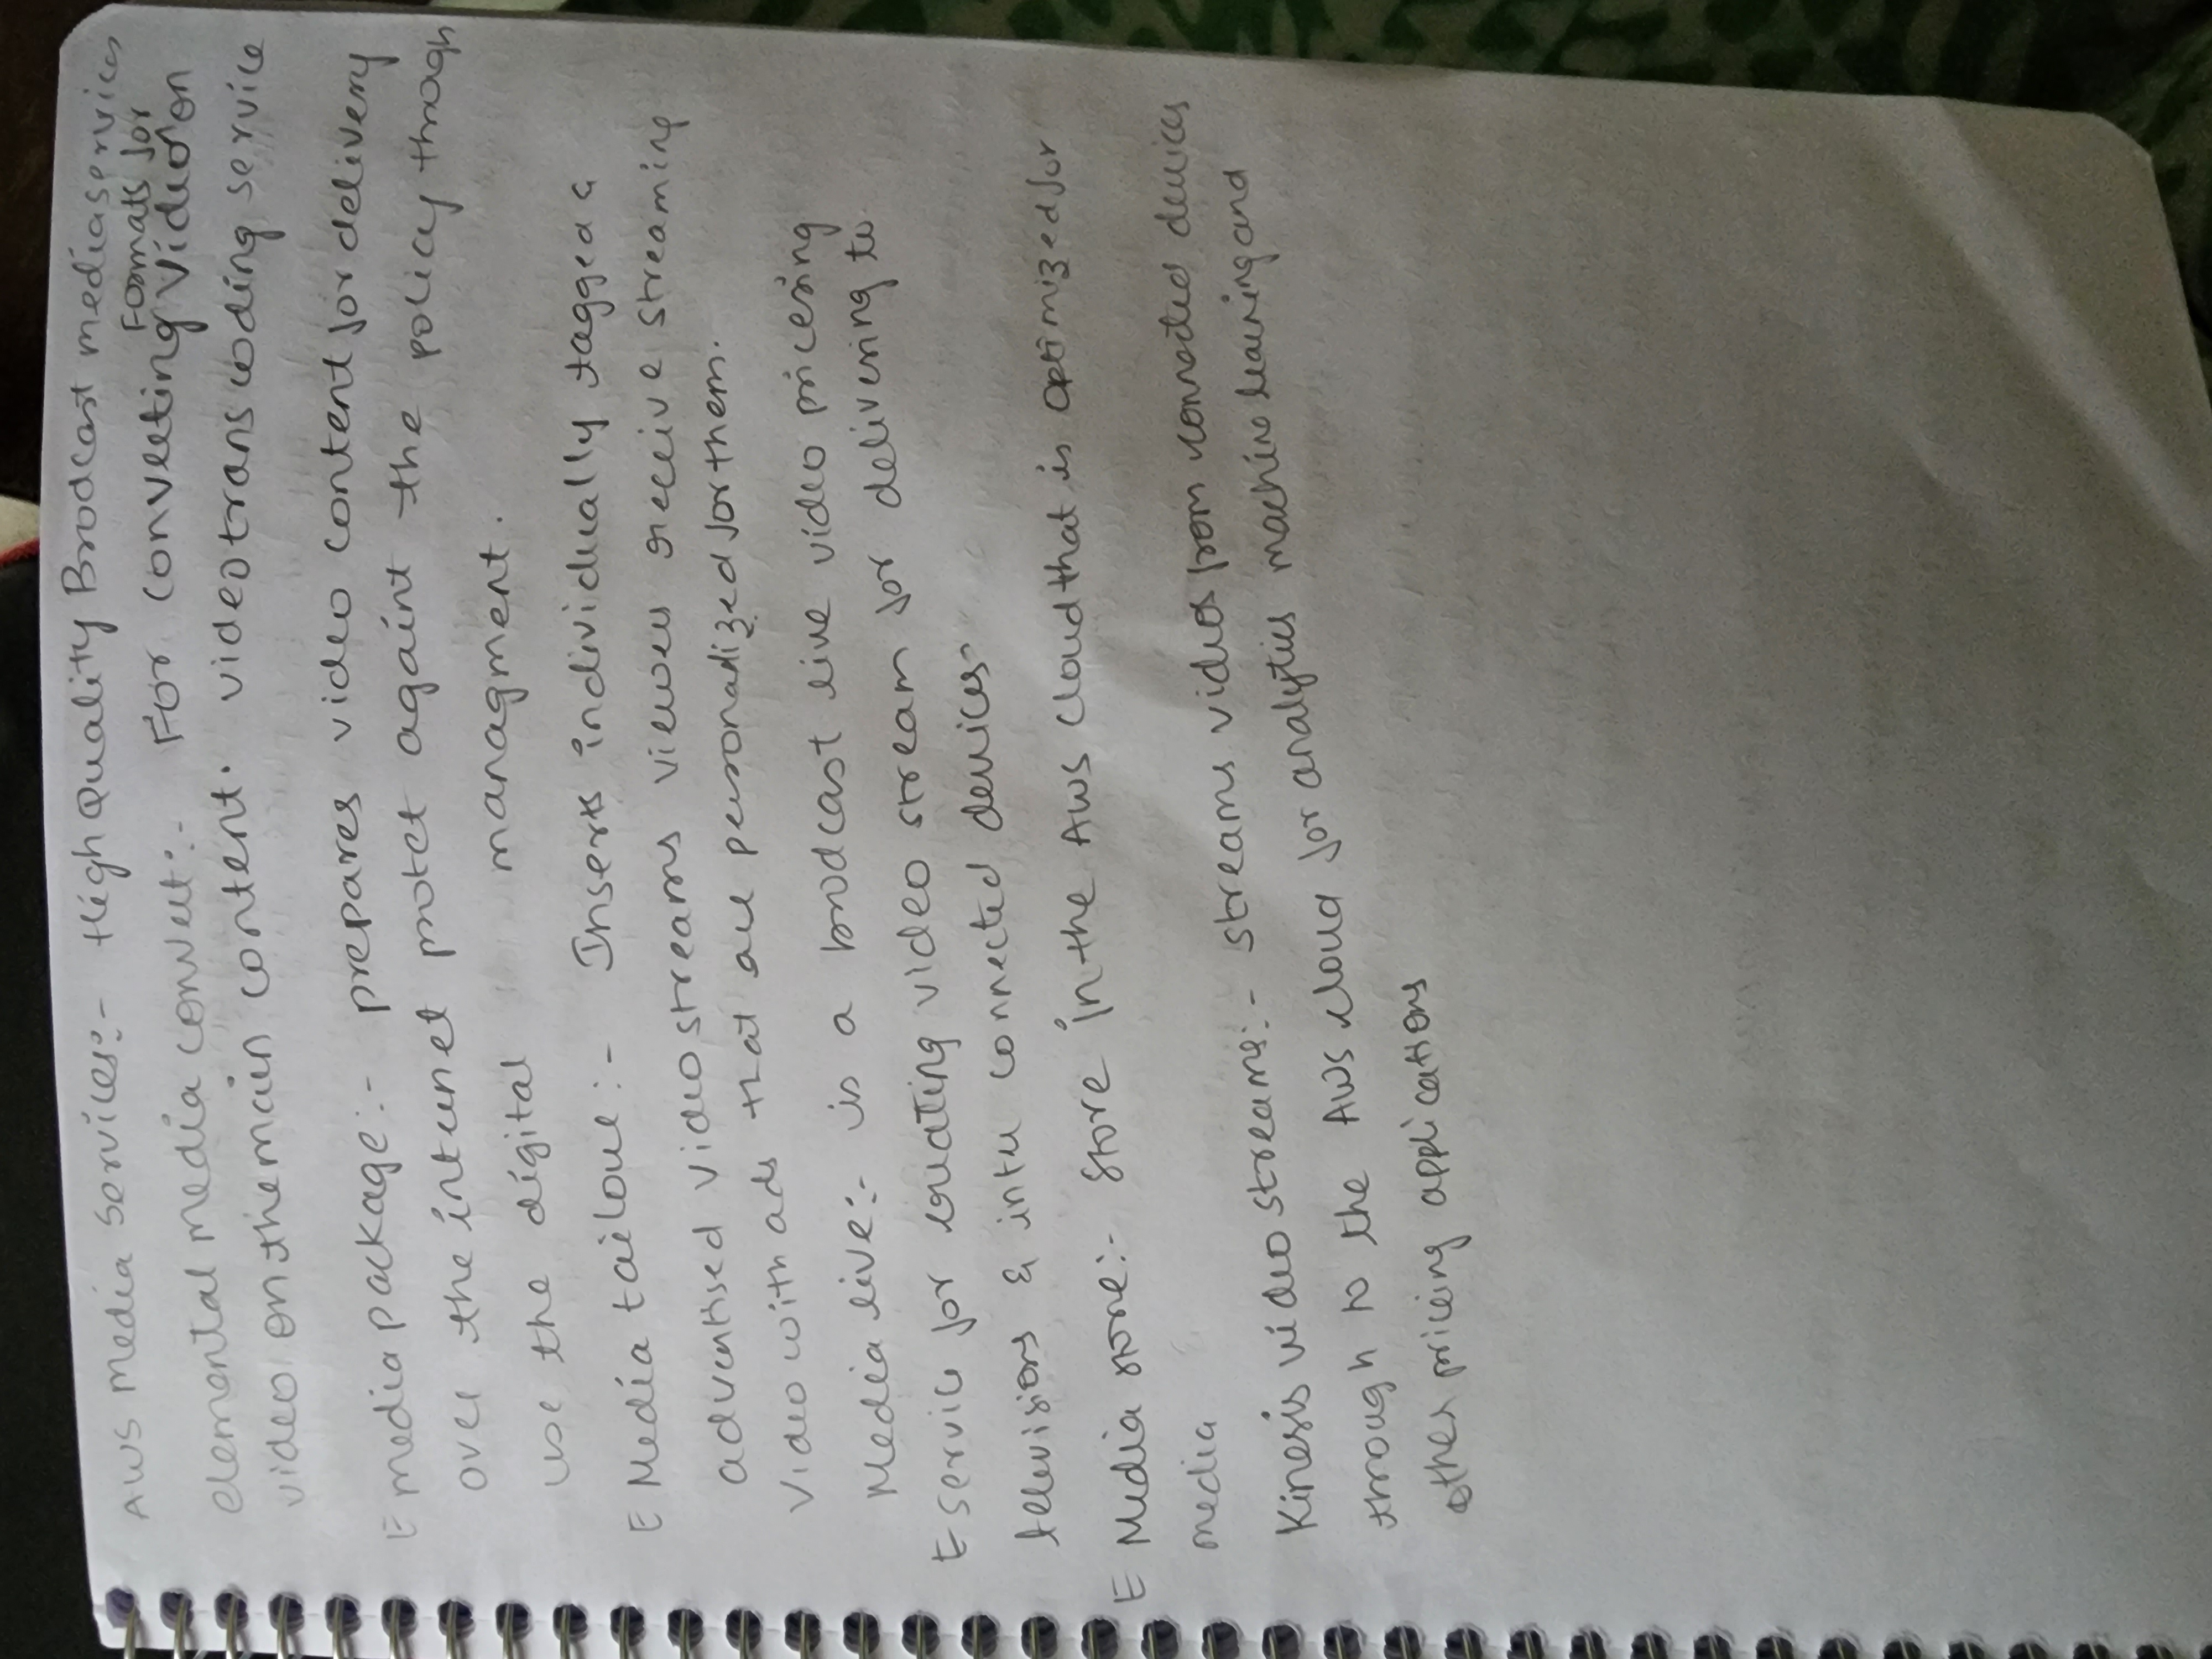 AWS Media Services:- High Quality Brodcast mediaservices
elemental media convert:- For converting Video Formats for on
video on themain content. video trans coding service
E media package:- prepares video content for delivery
over the internet protct againt the policy throagh
use the digital managment.
E Media tailoue:- Inserts individually tagged &
adventised video streams viewers receive streaming
Video with ads that are personalized for them.
Media live:- is a brodcast live video pricesing
E service for creating video stream for delivering to
televisions & inter connected devices
E Media store:- Store in the AWS Cloud that is optimized for
media
Kinesis video streams:- streams videos from connected devices
through to the AWS cloud for analytics machine learning and
other priceing applications